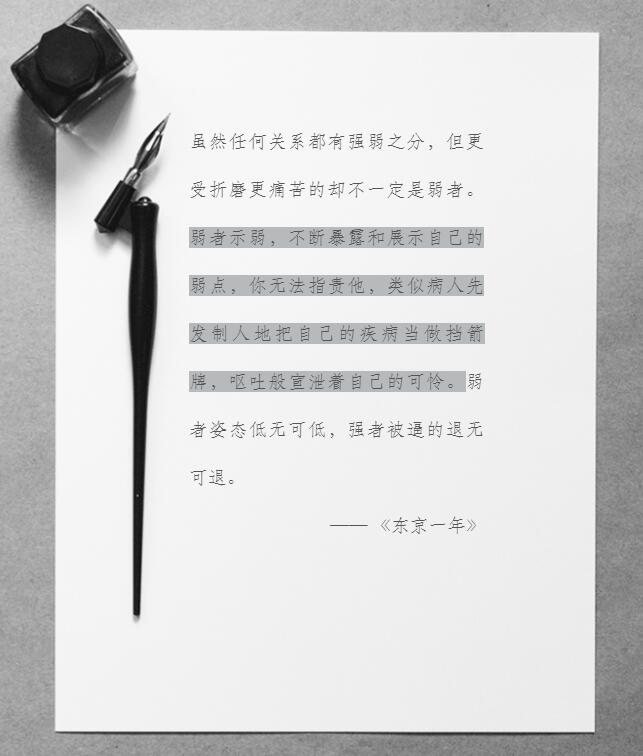 虽然任何关系都有强弱之分，但更
受折磨更痛苦的却不一定是弱者。
弱者示弱，不断暴露和展示自己的
弱点，你无法指责他，类似病人先
发制人地把自己的疾病当做挡箭
牌，呕吐般宣泄着自己的可怜。弱
者姿态低无可低，强者被逼的退无
可退。
——《东京一年》